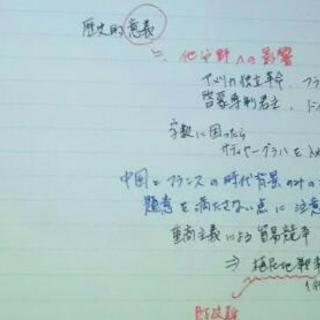 歴史的意義
≒ 他分野への影響
アメリカ独立革命、フラ
啓蒙専制君主、ドイ
字数に困ったら
サティヤーグラハを入れ
中国とフランスの時代背景のみの
題意を満たさない点に注意
重商主義による貿易競争
⇒ 植民地戦争